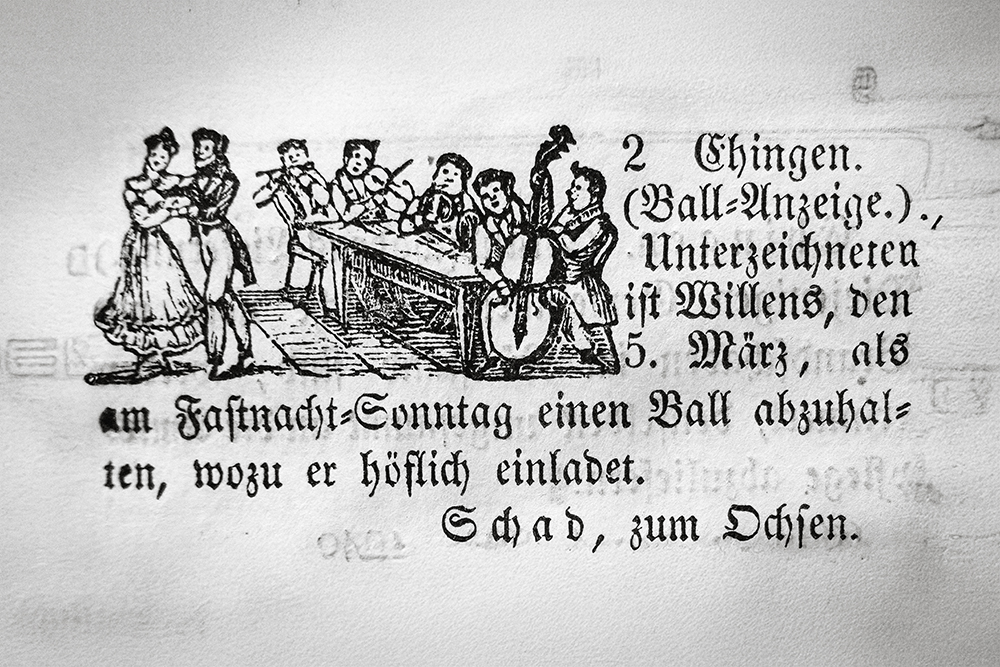 2 Ehingen.
(Ball-Anzeige.).,
Unterzeichneten
ist Willens, den
5. März, als
am Fastnacht-Sonntag einen Ball abzuhal-
ten, wozu er höflich einladet.
Schad, zum Ochsen.